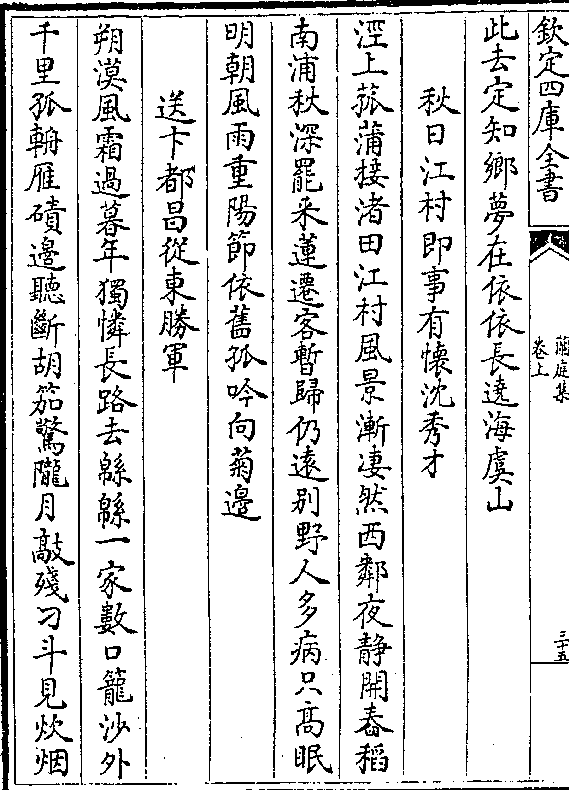 欽定四庫全書
蘭庭集
卷上
三十五
此去定知鄉夢在依依長遶海虞山
秋日江村即事有懷沈秀才
涇上菰蒲接渚田江村風景漸凄然西鄰夜静開舂稻
南浦秋深罷采蓮遷客暫歸仍遠别野人多病只髙眠
明朝風雨重陽節依舊孤吟向菊邉
送卞都昌從東勝軍
朔漠風霜過暮年獨憐長路去緜緜一家數口籠沙外
千里孤輈雁磧邉聽斷胡笳驚隴月敲殘刁斗見炊烟